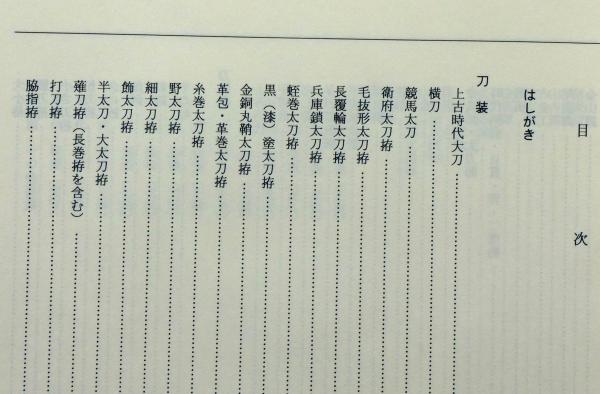 目次
はしがき
刀装
上古時代大刀
横刀
競馬太刀
衛府太刀拵
毛抜形太刀拵
長覆輪太刀拵
兵庫鎖太刀拵
蛭巻太刀拵
黒（漆）塗太刀拵
金銅丸鞘太刀拵
革包・革巻太刀拵
糸巻太刀拵
野太刀拵
細太刀拵
飾太刀拵
半太刀・大太刀拵
薙刀拵（長巻拵を含む）
打刀拵
脇指拵